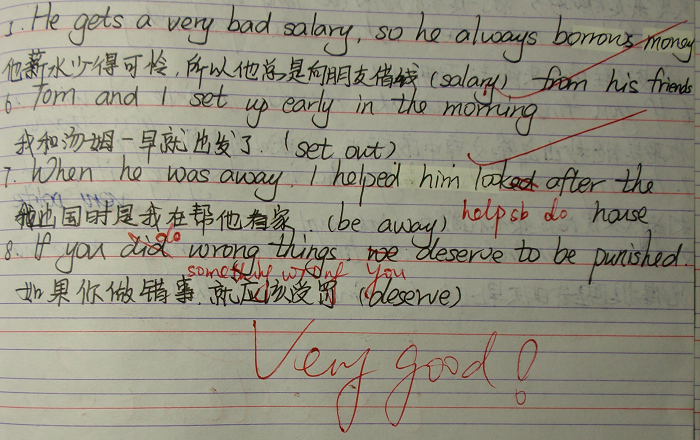 5. He gets a very bad salary, so he always borrows money
他薪水少得可怜,所以他总是向朋友借钱 (salary) from his friends
6. Tom and I set up early in the morning
我和汤姆一早就出发了. (set out)
7. When he was away. I helped him looked after the
他出国时是我在帮他看家. (be away) help sb do house
8. If you did do wrong things. we deserve to be punished.
something wrong you
如果你做错事.就应该受罚 (deserve)
Very good!